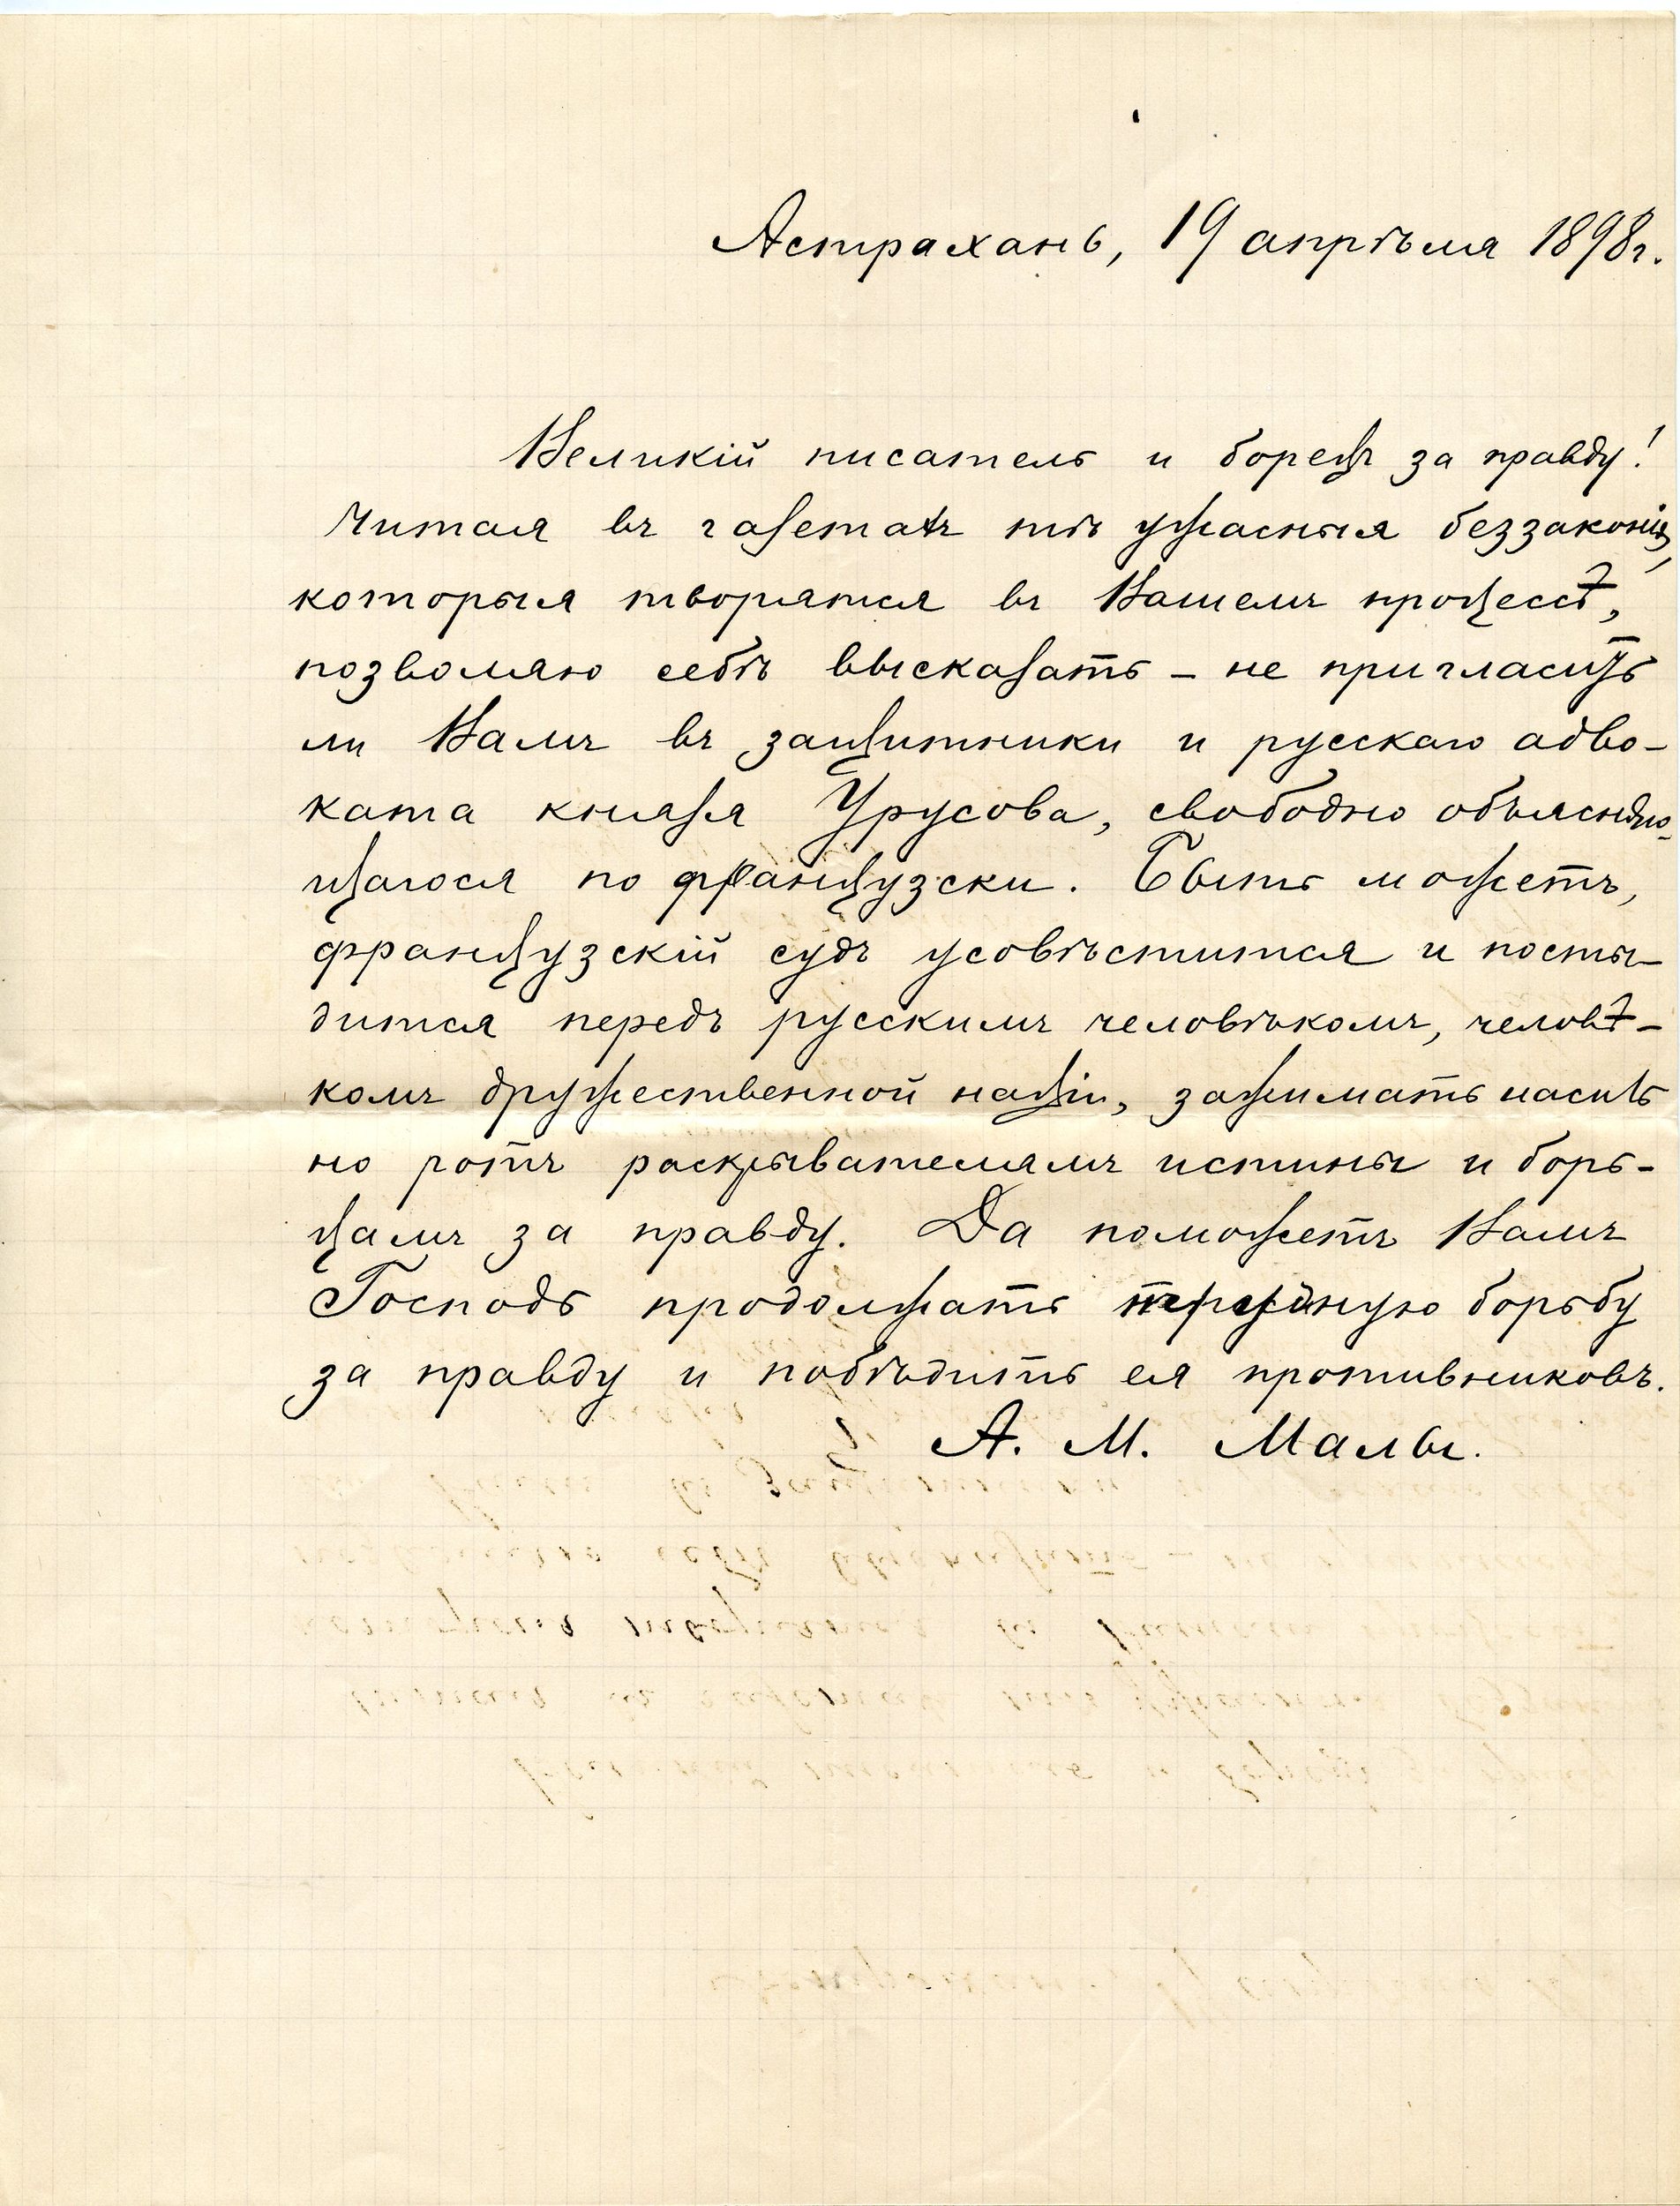 Астрахань, 19 апрѣля 1898г.
Великій писатель и борецъ за правду!
Читая въ газетахъ тѣ ужасныя беззаконія,
которыя творятся въ Вашемъ процессѣ,
позволяю себѣ высказать - не пригласить
ли Вамъ въ защитники и русскаго адво-
ката князя Урусова, свободно объясняю-
щагося по французски. Быть можетъ,
французскій судъ усовѣстится и посты-
дится передъ русскимъ человѣкомъ, человѣ-
комъ дружественной націи, зажимать насиль
но ротъ раскрывателямъ истины и борь-
цамъ за правду. Да поможетъ Вамъ
Господь продолжать борьбу
за правду и побѣдить ея противниковъ.
А. М. Малы.